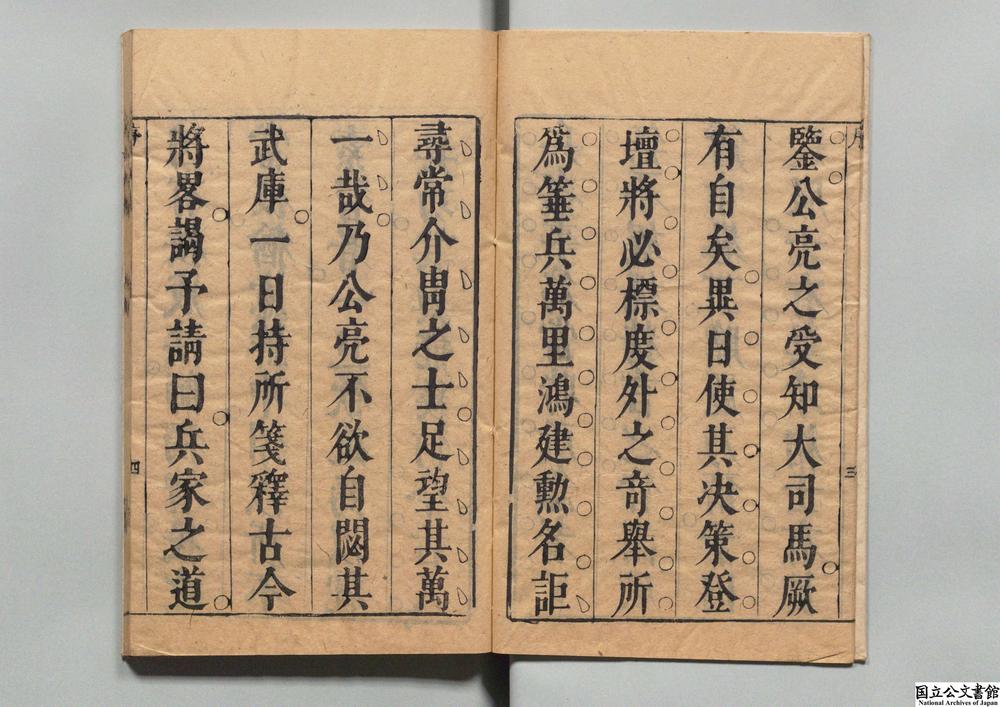 序
三
鑒公亮之受知大司馬厥
有自矣異日使其決策登
壇將必標度外之奇舉所
爲箠兵萬里鴻建勲名詎
尋常介冑之士足望其萬
一哉乃公亮不欲自閟其
武庫一日持所箋釋古今
將畧謁予請曰兵家之道
序
四
国立公文書館
National Archives of Japan